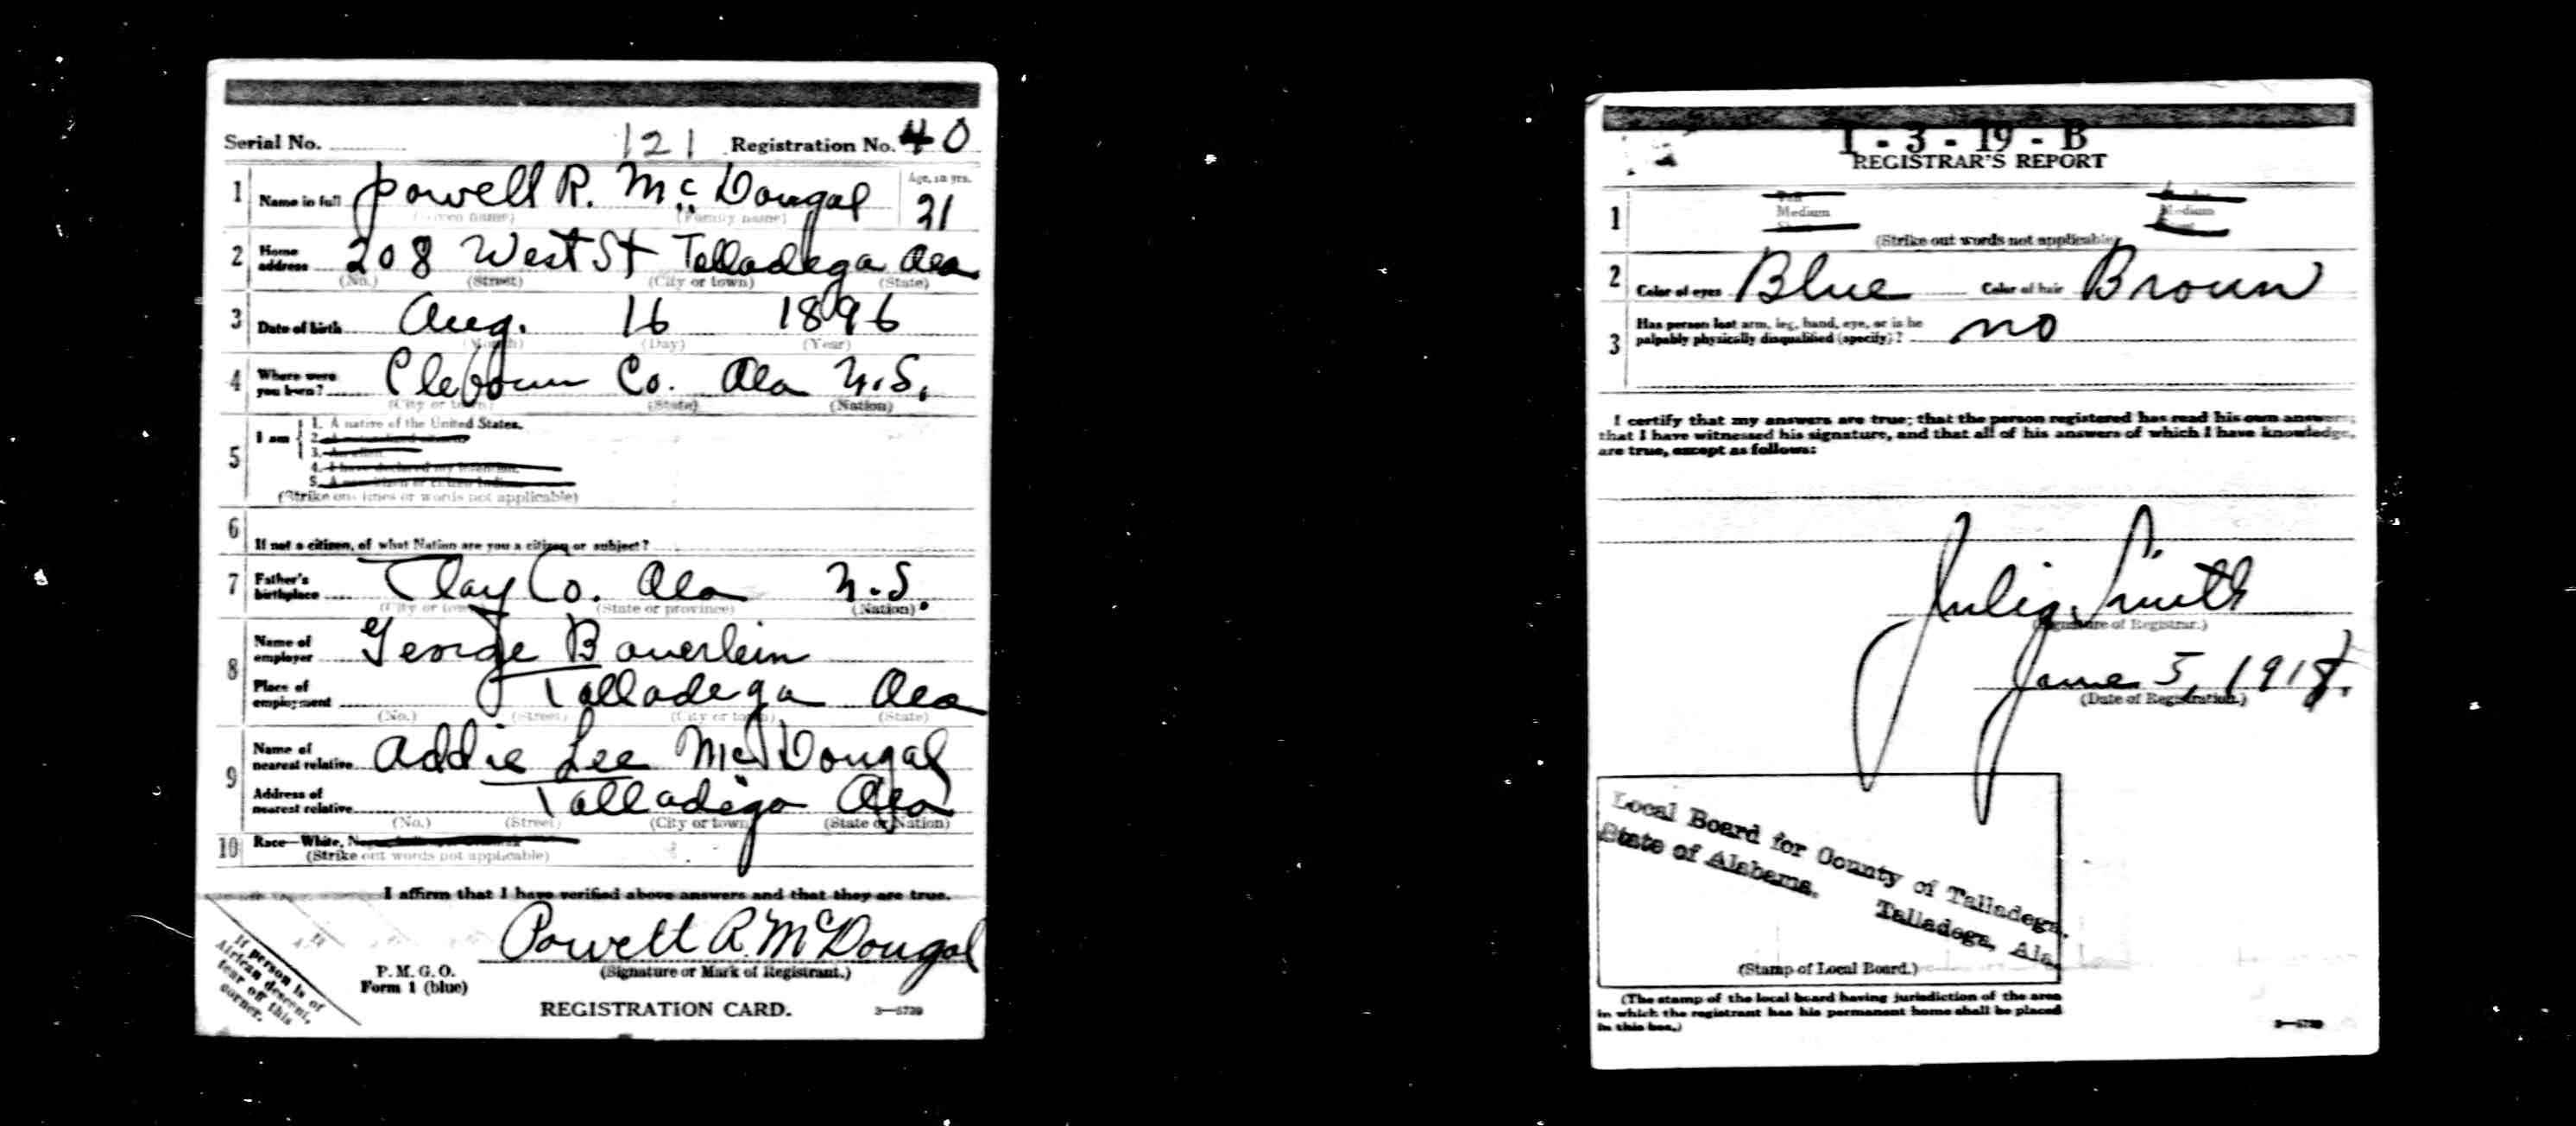 Serial No. 121 Registration No. 40
1 Name in full Powell R. McDougal Age, in yrs. 21
(Given name) (Family name)
2 Home address 208 West St Talladega Ala
(No.) (Street) (City or town) (State)
3 Date of birth Aug. 16 1896
(Month) (Day) (Year)
4 Where were you born? Clebourn Co. Ala U.S.
(City or town) (State) (Nation)
5 I am 1. A native of the United States.
2. A naturalized citizen
3. An alien
4. I have declared my intention.
5. A
(Strike out lines or words not applicable)
6 If not a citizen, of what Nation are you a citizen or subject?
7 Father's birthplace Clay Co. Ala U.S.
(City or town) (State or province) (Nation)
8 Name of employer George Bauerlein
Place of employment Talladega Ala
(No.) (Street) (City or town) (State)
9 Name of nearest relative Addie Lee McDougal
Address of nearest relative Talladega Ala
(No.) (Street) (City or town) (State or Nation)
10 Race—White,
(Strike out words not applicable)
I affirm that I have verified above answers and that they are true.
Powell R. McDougal
(Signature or Mark of Registrant.)
P. M. G. O.
Form 1 (blue)
REGISTRATION CARD.
3—5739
If person is of
African descent,
tear off this
corner.
1 - 3 - 19 - B
REGISTRAR'S REPORT
1 Medium Medium
(Strike out words not applicable)
2 Color of eyes Blue Color of hair Broun
3 Has person lost arm, leg, hand, eye, or is he
palpably physically disqualified (specify)? no
I certify that my answers are true; that the person registered has read his own answers;
that I have witnessed his signature, and that all of his answers of which I have knowledge,
are true, except as follows:
Smith
(Signature of Registrar.)
June 5, 1918.
(Date of Registration.)
Local Board for County of Talladega.
State of Alabama.
Talladega, Ala.
(Stamp of Local Board.)
(The stamp of the local board having jurisdiction of the area
in which the registrant has his permanent home shall be placed
in this box.)
3—5739